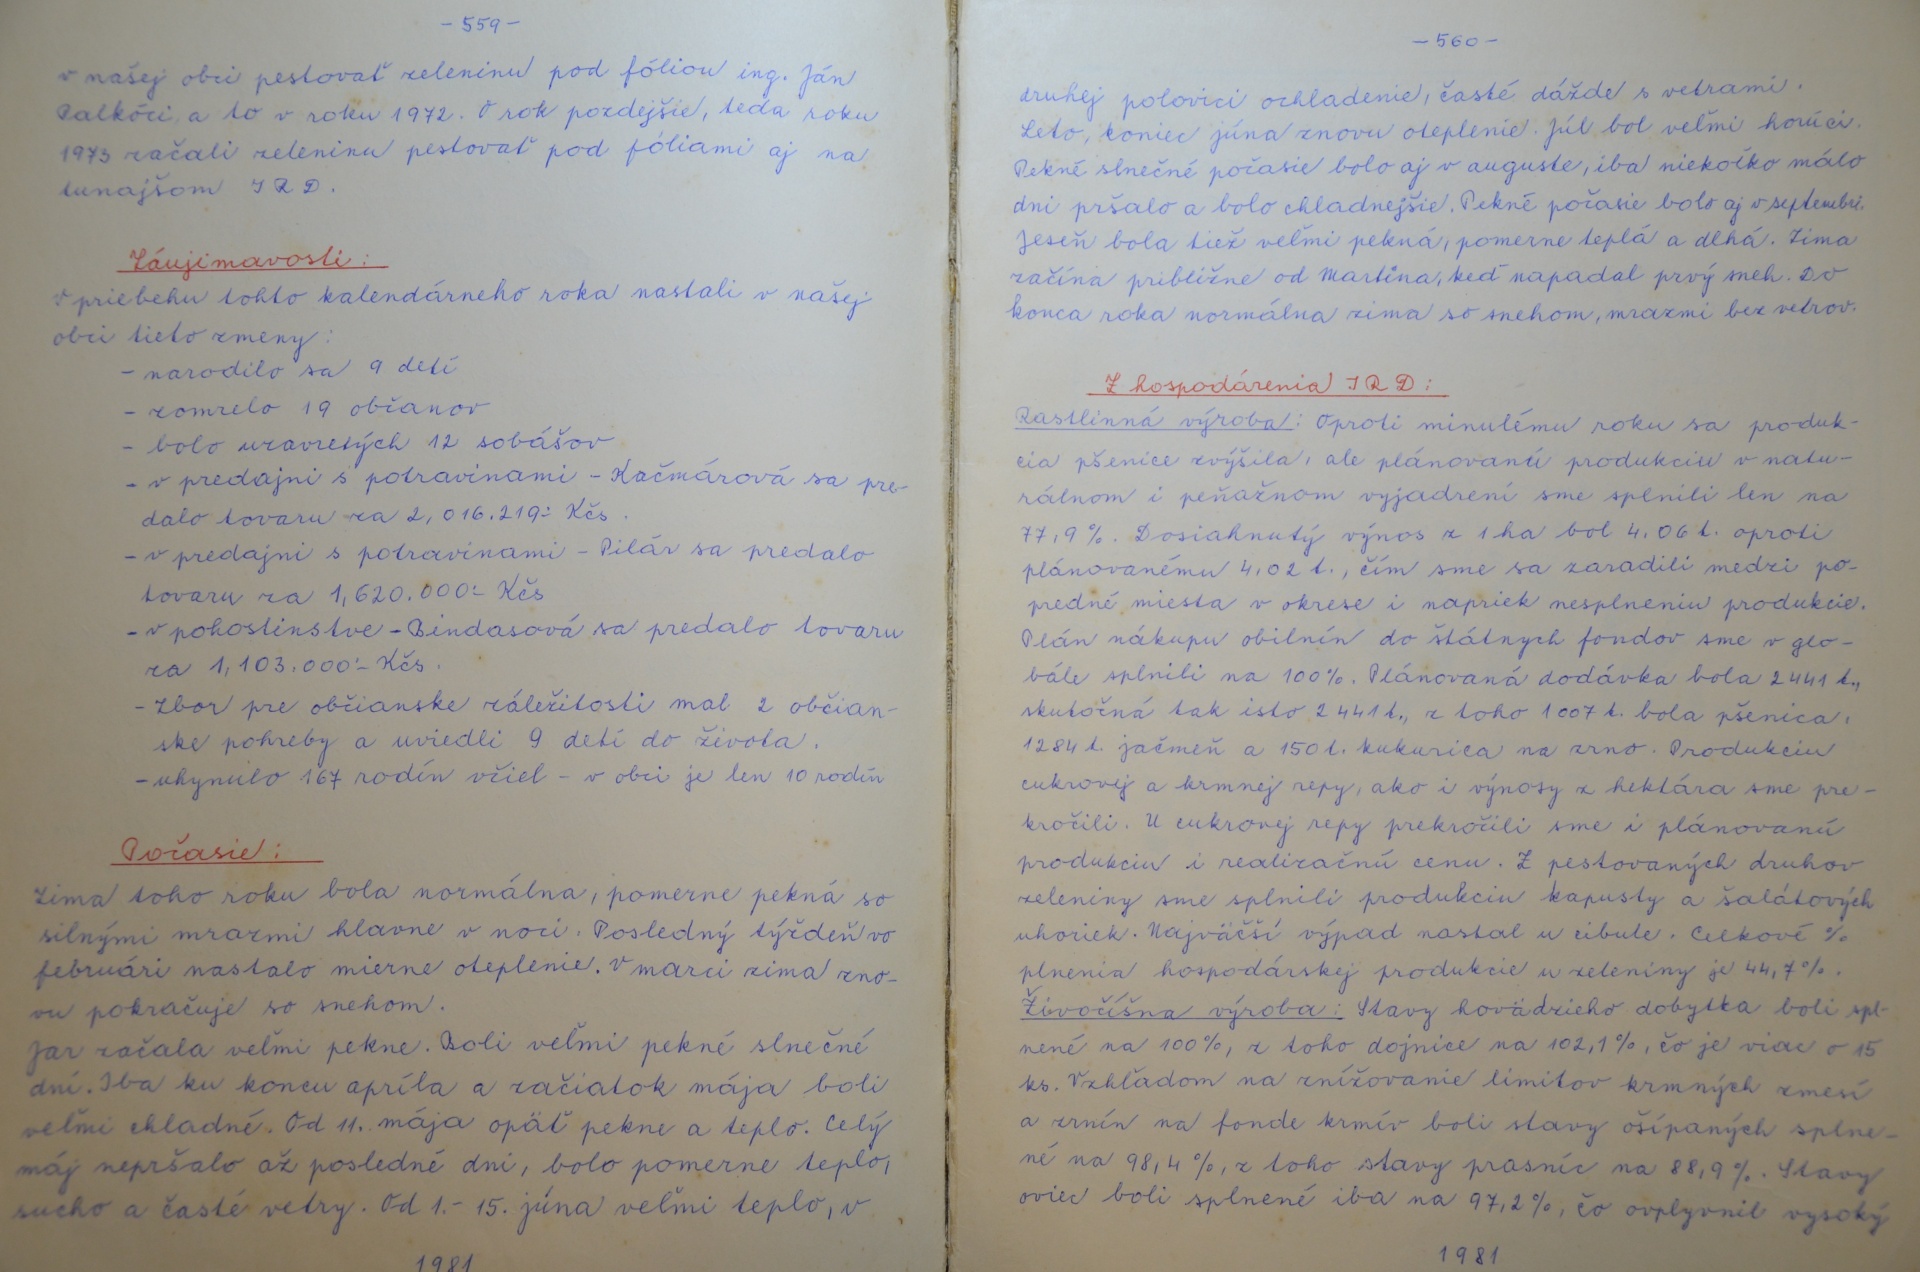 - 559 -
v našej obci pestovať zeleninu pod fóliou ing. Ján
Palkóci a to v roku 1972. O rok pozdejšie, teda roku
1973 začali zeleninu pestovať pod fóliami aj na
tunajšom JRD.
Záujimavosti:
V priebehu tohto kalendárneho roka nastali v našej
obci tieto zmeny:
- narodilo sa 9 detí
- zomrelo 19 občanov
- bolo uzavretých 12 sobášov
- v predajni s potravinami - Kačmárová sa pre-
dalo tovaru za 2,016.219.- Kčs.
- v predajni s potravinami - Pilár sa predalo
tovaru za 1,620.000.- Kčs
- v pohostinstve - Bindasová sa predalo tovaru
za 1,103.000.- Kčs.
- Zbor pre občianske záležitosti mal 2 občian-
ske pohreby a uviedli 9 detí do života.
- uhynulo 167 rodín včiel - v obci je len 10 rodín
Počasie:
Zima toho roku bola normálna, pomerne pekná so
silnými mrazmi hlavne v noci. Posledný týždeň vo
februári nastalo mierne oteplenie. V marci zima zno-
vu pokračuje so snehom.
Jar začala veľmi pekne. Boli veľmi pekné slnečné
dni. Iba ku koncu apríla a začiatok mája boli
veľmi chladné. Od 11. mája opäť pekne a teplo. Celý
máj nepršalo až posledné dni, bolo pomerne teplo,
sucho a časté vetry. Od 1.- 15. júna veľmi teplo, v
1981
- 560 -
druhej polovici ochladenie, časté dážde s vetrami.
Leto, koniec júna znovu oteplenie. Júl bol veľmi horúci.
Pekné slnečné počasie bolo aj v auguste, iba niekoľko málo
dni pršalo a bolo chladnejšie. Pekné počasie bolo aj v septembri.
Jeseň bola tiež veľmi pekná, pomerne teplá a dlhá. Zima
začína približne od Martina, keď napadal prvý sneh. Do
konca roka normálna zima so snehom, mrazmi bez vetrov.
Z hospodárenia JRD:
Rastlinná výroba: Oproti minulému roku sa produk-
cia pšenice zvýšila, ale plánovanú produkciu v natu-
rálnom i peňažnom vyjadrení sme splnili len na
77,9%. Dosiahnutý výnos z 1 ha bol 4.06 t. oproti
plánovanému 4,02 t., čím sme sa zaradili medzi po-
predné miesta v okrese i napriek nesplneniu produkcie.
Plán nákupu obilnín do štátnych fondov sme v glo-
bále splnili na 100%. Plánovaná dodávka bola 2441 t.,
skutočná tak isto 2441 t., z toho 1007 t. bola pšenica,
1284 t. jačmeň a 150 t. kukurica na zrno. Produkciu
cukrovej a krmnej repy, ako i výnosy z hektára sme pre-
kročili. U cukrovej repy prekročili sme i plánovanú
produkciu i realizačnú cenu. Z pestovaných druhov
zeleniny sme splnili produkciu kapusty a šalátových
uhoriek. Najväčší výpad nastal u cibule. Celkové %
plnenia hospodárskej produkcie u zeleniny je 44,7%.
Živočíšna výroba: Stavy hovädzieho dobytka boli spl-
nené na 100%, z toho dojnice na 102,1%, čo je viac o 15
ks. Vzhľadom na znižovanie limitov krmných zmesí
a zrnín na fonde krmív boli stavy ošípaných splne-
né na 98,4%, z toho stavy prasníc na 88,9%. Stavy
oviec boli splnené iba na 97,2%, čo ovplyvnil vysoký
1981